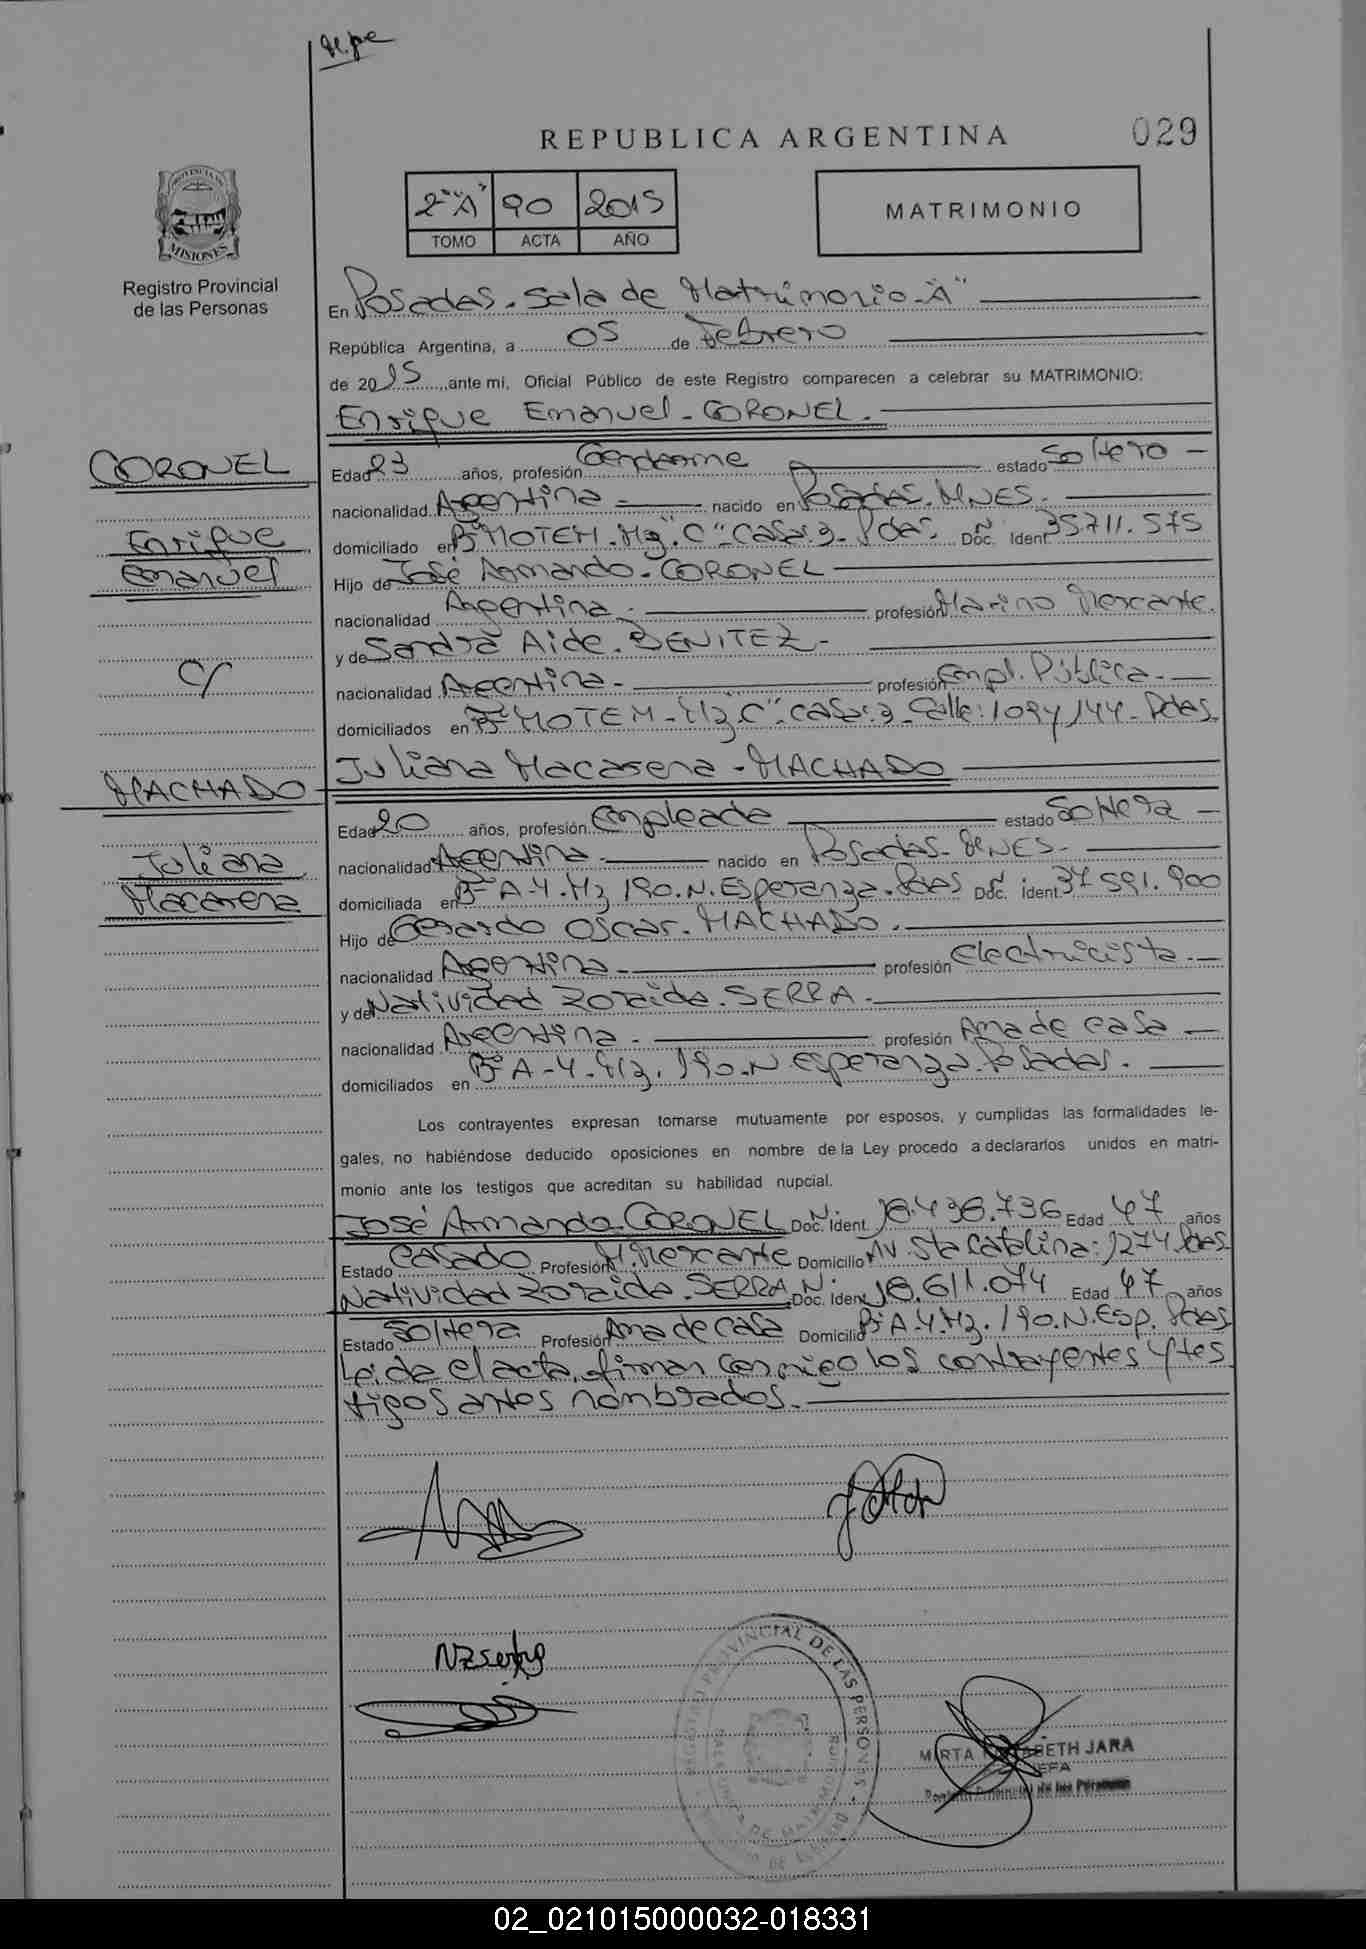 REPUBLICA ARGENTINA
029
PROVINCIA DE
MISIONES
Registro Provincial
de las Personas
2° "A" 90 2015
TOMO ACTA AÑO
MATRIMONIO
En Posadas. Sala de Matrimonio "A"
República Argentina, a 05 de Febrero
de 2015, ante mi, Oficial Público de este Registro comparecen a celebrar su MATRIMONIO:
Enrique Emanuel - CORONEL.
CORONEL
Enrique
Emanuel
c/
MACHADO
Juliana
Macarena
Edad 23 años, profesión Gendarme estado Soltero -
nacionalidad Argentina - nacido en Posadas. MNES.
domiciliado en B° MOTEM. Mz. "C" Casa: 3. Pdas. Doc. Ident N° 35711.575
Hijo de José Armando. CORONEL
nacionalidad Argentina. profesión Marino Mercante.
y de Sandra Aide. BENITEZ -
nacionalidad Argentina - profesión Empl. Pública.
domiciliados en B° MOTEM - Mz "C" Casa: 3 - Calle: 109 y 144 - Pdas.
Juliana Macarena - MACHADO
Edad 20 años, profesión Empleada estado Soltera -
nacionalidad Argentina. nacido en Posadas. MNES.
domiciliada en B° A-4. Mz 190. N. Esperanza. Pdas Doc. ident. N° 37591.900
Hijo de Gerardo Oscar. MACHADO.
nacionalidad Argentina. profesión Electricista.
y de Natividad Zoraida. SERRA.
nacionalidad Argentina. profesión Ama de casa -
domiciliados en B° A-4. Mz. 190. N Esperanza. Posadas.
Los contrayentes expresan tomarse mutuamente por esposos, y cumplidas las formalidades le-
gales, no habiéndose deducido oposiciones en nombre de la Ley procedo a declararlos unidos en matri-
monio ante los testigos que acreditan su habilidad nupcial.
José Armando. CORONEL Doc. Ident. N° 18.438.736 Edad 47 años
Estado Casado Profesión M. Mercante Domicilio Av. Sta Catalina: 1274 Pdas
Natividad Zoraida. SERRA Doc. Ident N° 18.611.074 Edad 47 años
Estado Soltera Profesión Ama de casa Domicilio B° A.4. Mz. 190. N. Esp. Pdas
Leída el acta, firman conmigo los contrayentes y tes
tigos antes nombrados.
NZserra
PROVINCIAL DE LAS PERSONAS
MIRTA JARA
JEFA
Provincial de las Personas
02_021015000032-018331